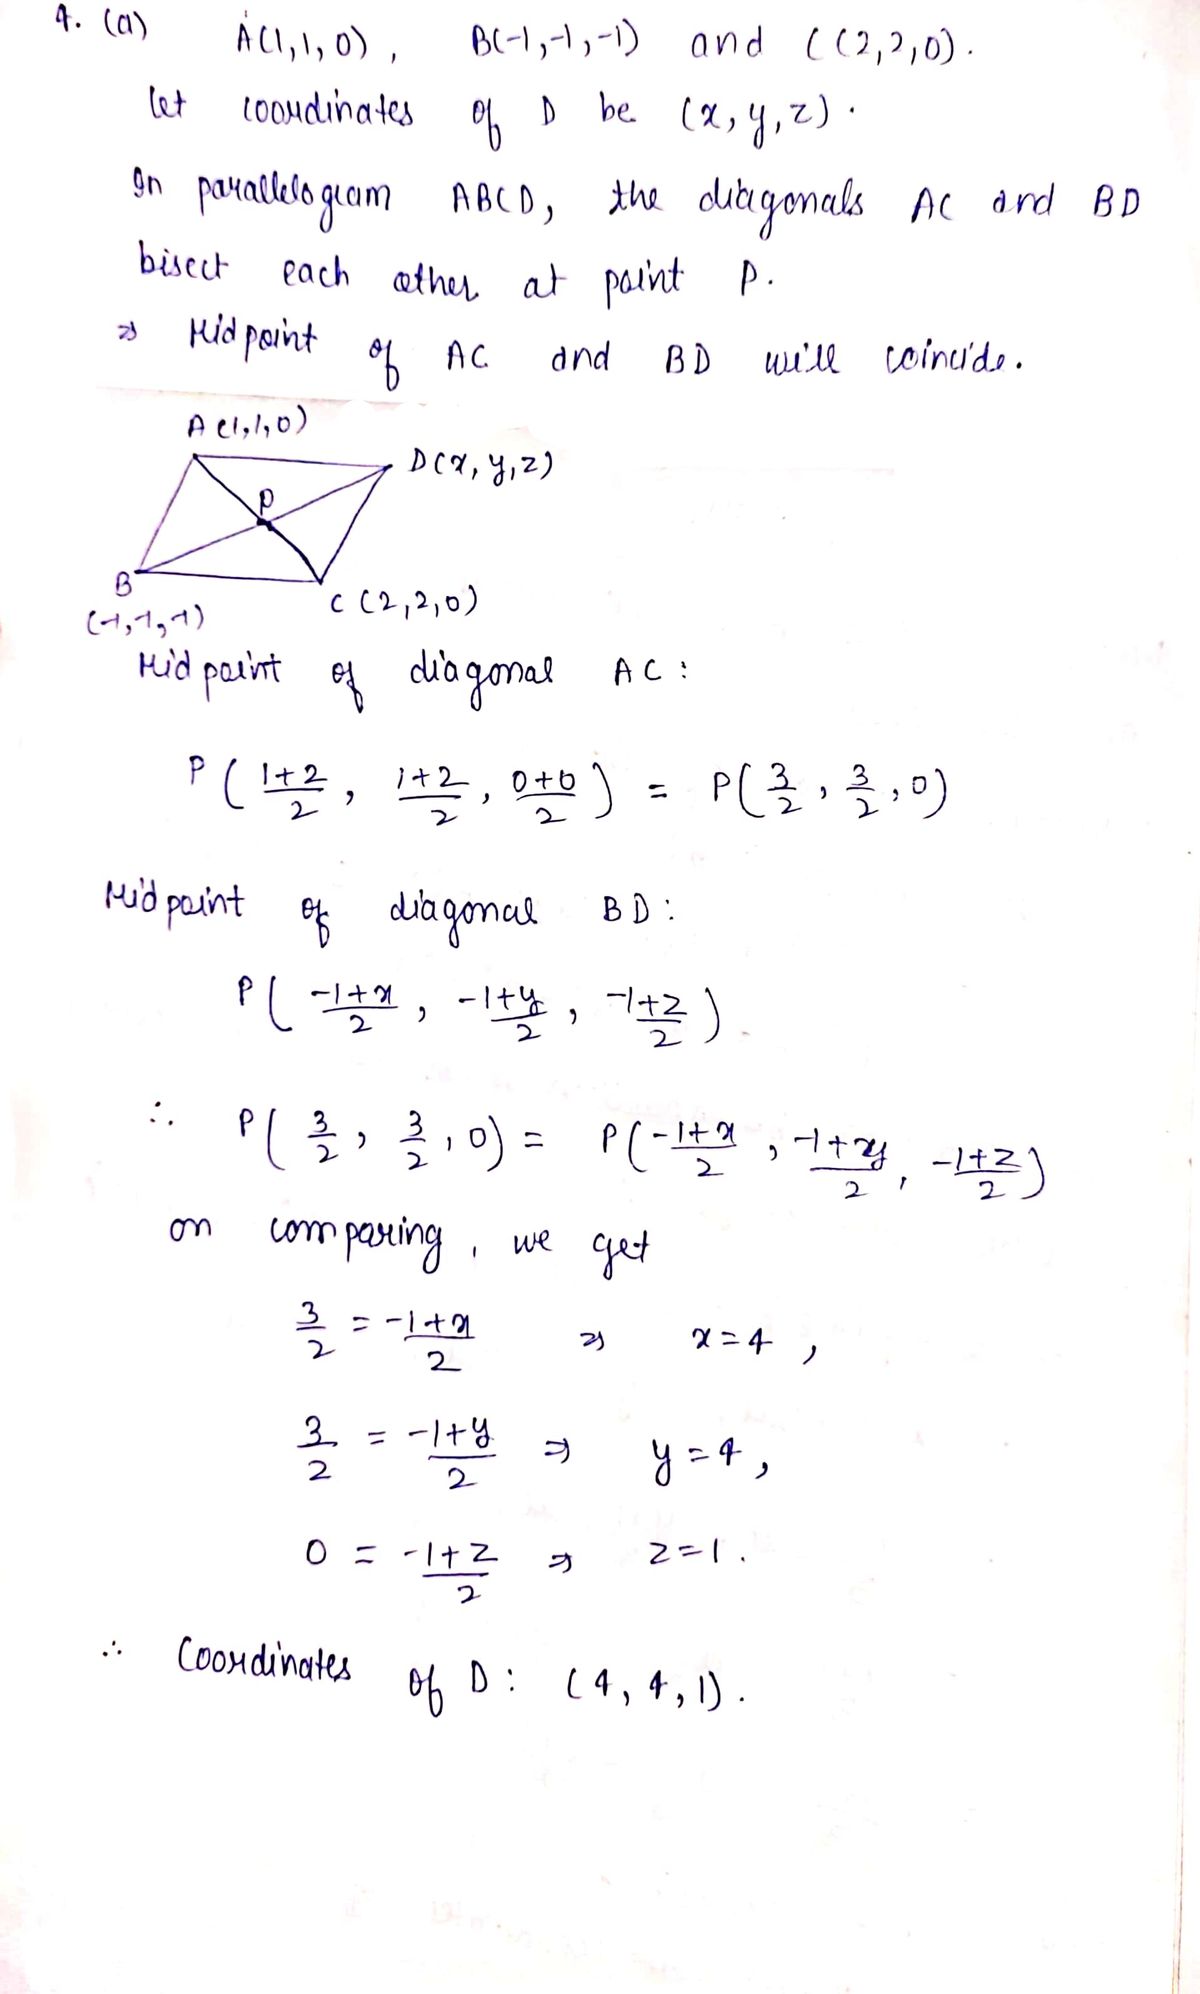 4. (a) A(1,1,0), B(-1,-1,-1) and C(2,2,0).
let coordinates of D be (x,y,z).
In parallelogram ABCD, the diagonals AC and BD
bisect each other at point P.
⇒ Midpoint of AC and BD will coincide.
A(1,1,0)
D(x,y,z)
P
B
(-1,-1,-1)
C(2,2,0)
Midpoint of diagonal AC:
P( (1+2)/2, (1+2)/2, (0+0)/2 ) = P(3/2, 3/2, 0)
Midpoint of diagonal BD:
P( (-1+x)/2, (-1+y)/2, (-1+z)/2 )
∴ P(3/2, 3/2, 0) = P( (-1+x)/2, (-1+y)/2, (-1+z)/2 )
on comparing, we get
3/2 = (-1+x)/2 ⇒ x=4,
3/2 = (-1+y)/2 ⇒ y=4,
0 = (-1+z)/2 ⇒ z=1.
∴ Coordinates of D: (4,4,1).